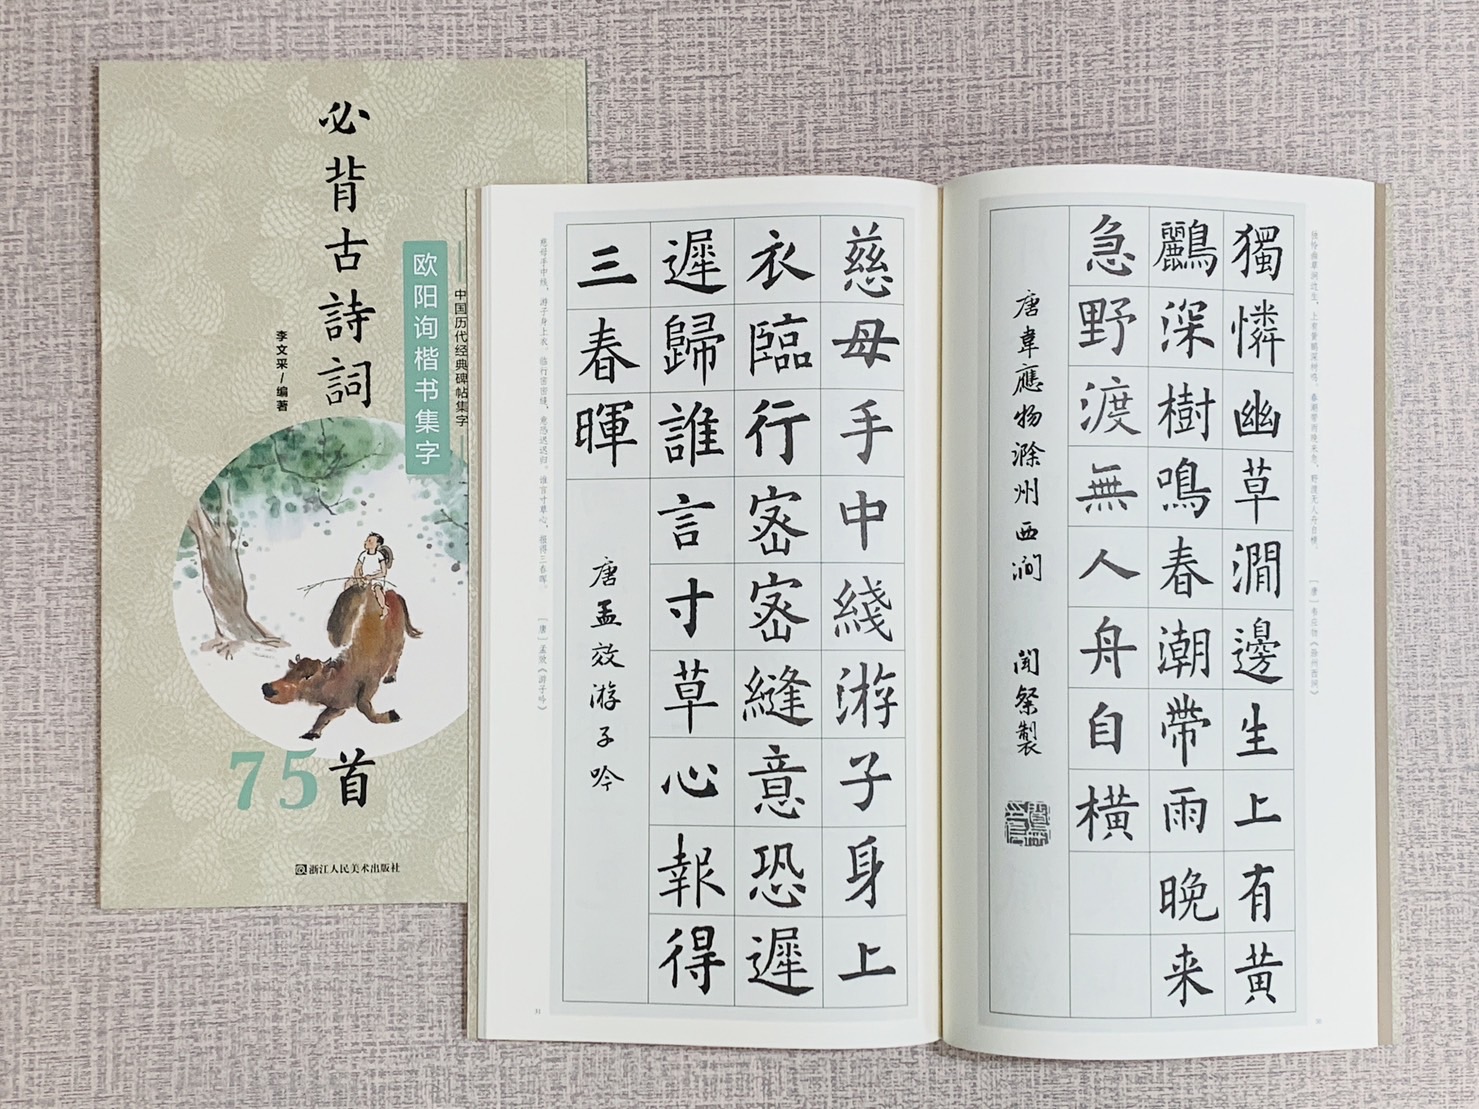 必背古詩詞
75首
欧阳询楷书集字
中国历代经典碑帖集字
李文采/编著
浙江人民美术出版社
独怜幽草涧边生，上有黄鹂深树鸣。春潮带雨晚来急，野渡无人舟自横。 [唐]韦应物《滁州西涧》
獨憐幽草澗邊生上有黃
鸝深樹鳴春潮帶雨晚来
急野渡無人舟自橫
唐韋應物滁州西澗 聞粲製
慈母手中綫游子身上
衣臨行密密縫意恐遲
遲歸誰言寸草心報得
三春暉
唐孟效游子吟
慈母手中线，游子身上衣。临行密密缝，意恐迟迟归。谁言寸草心，报得三春晖。 [唐]孟效《游子吟》
31